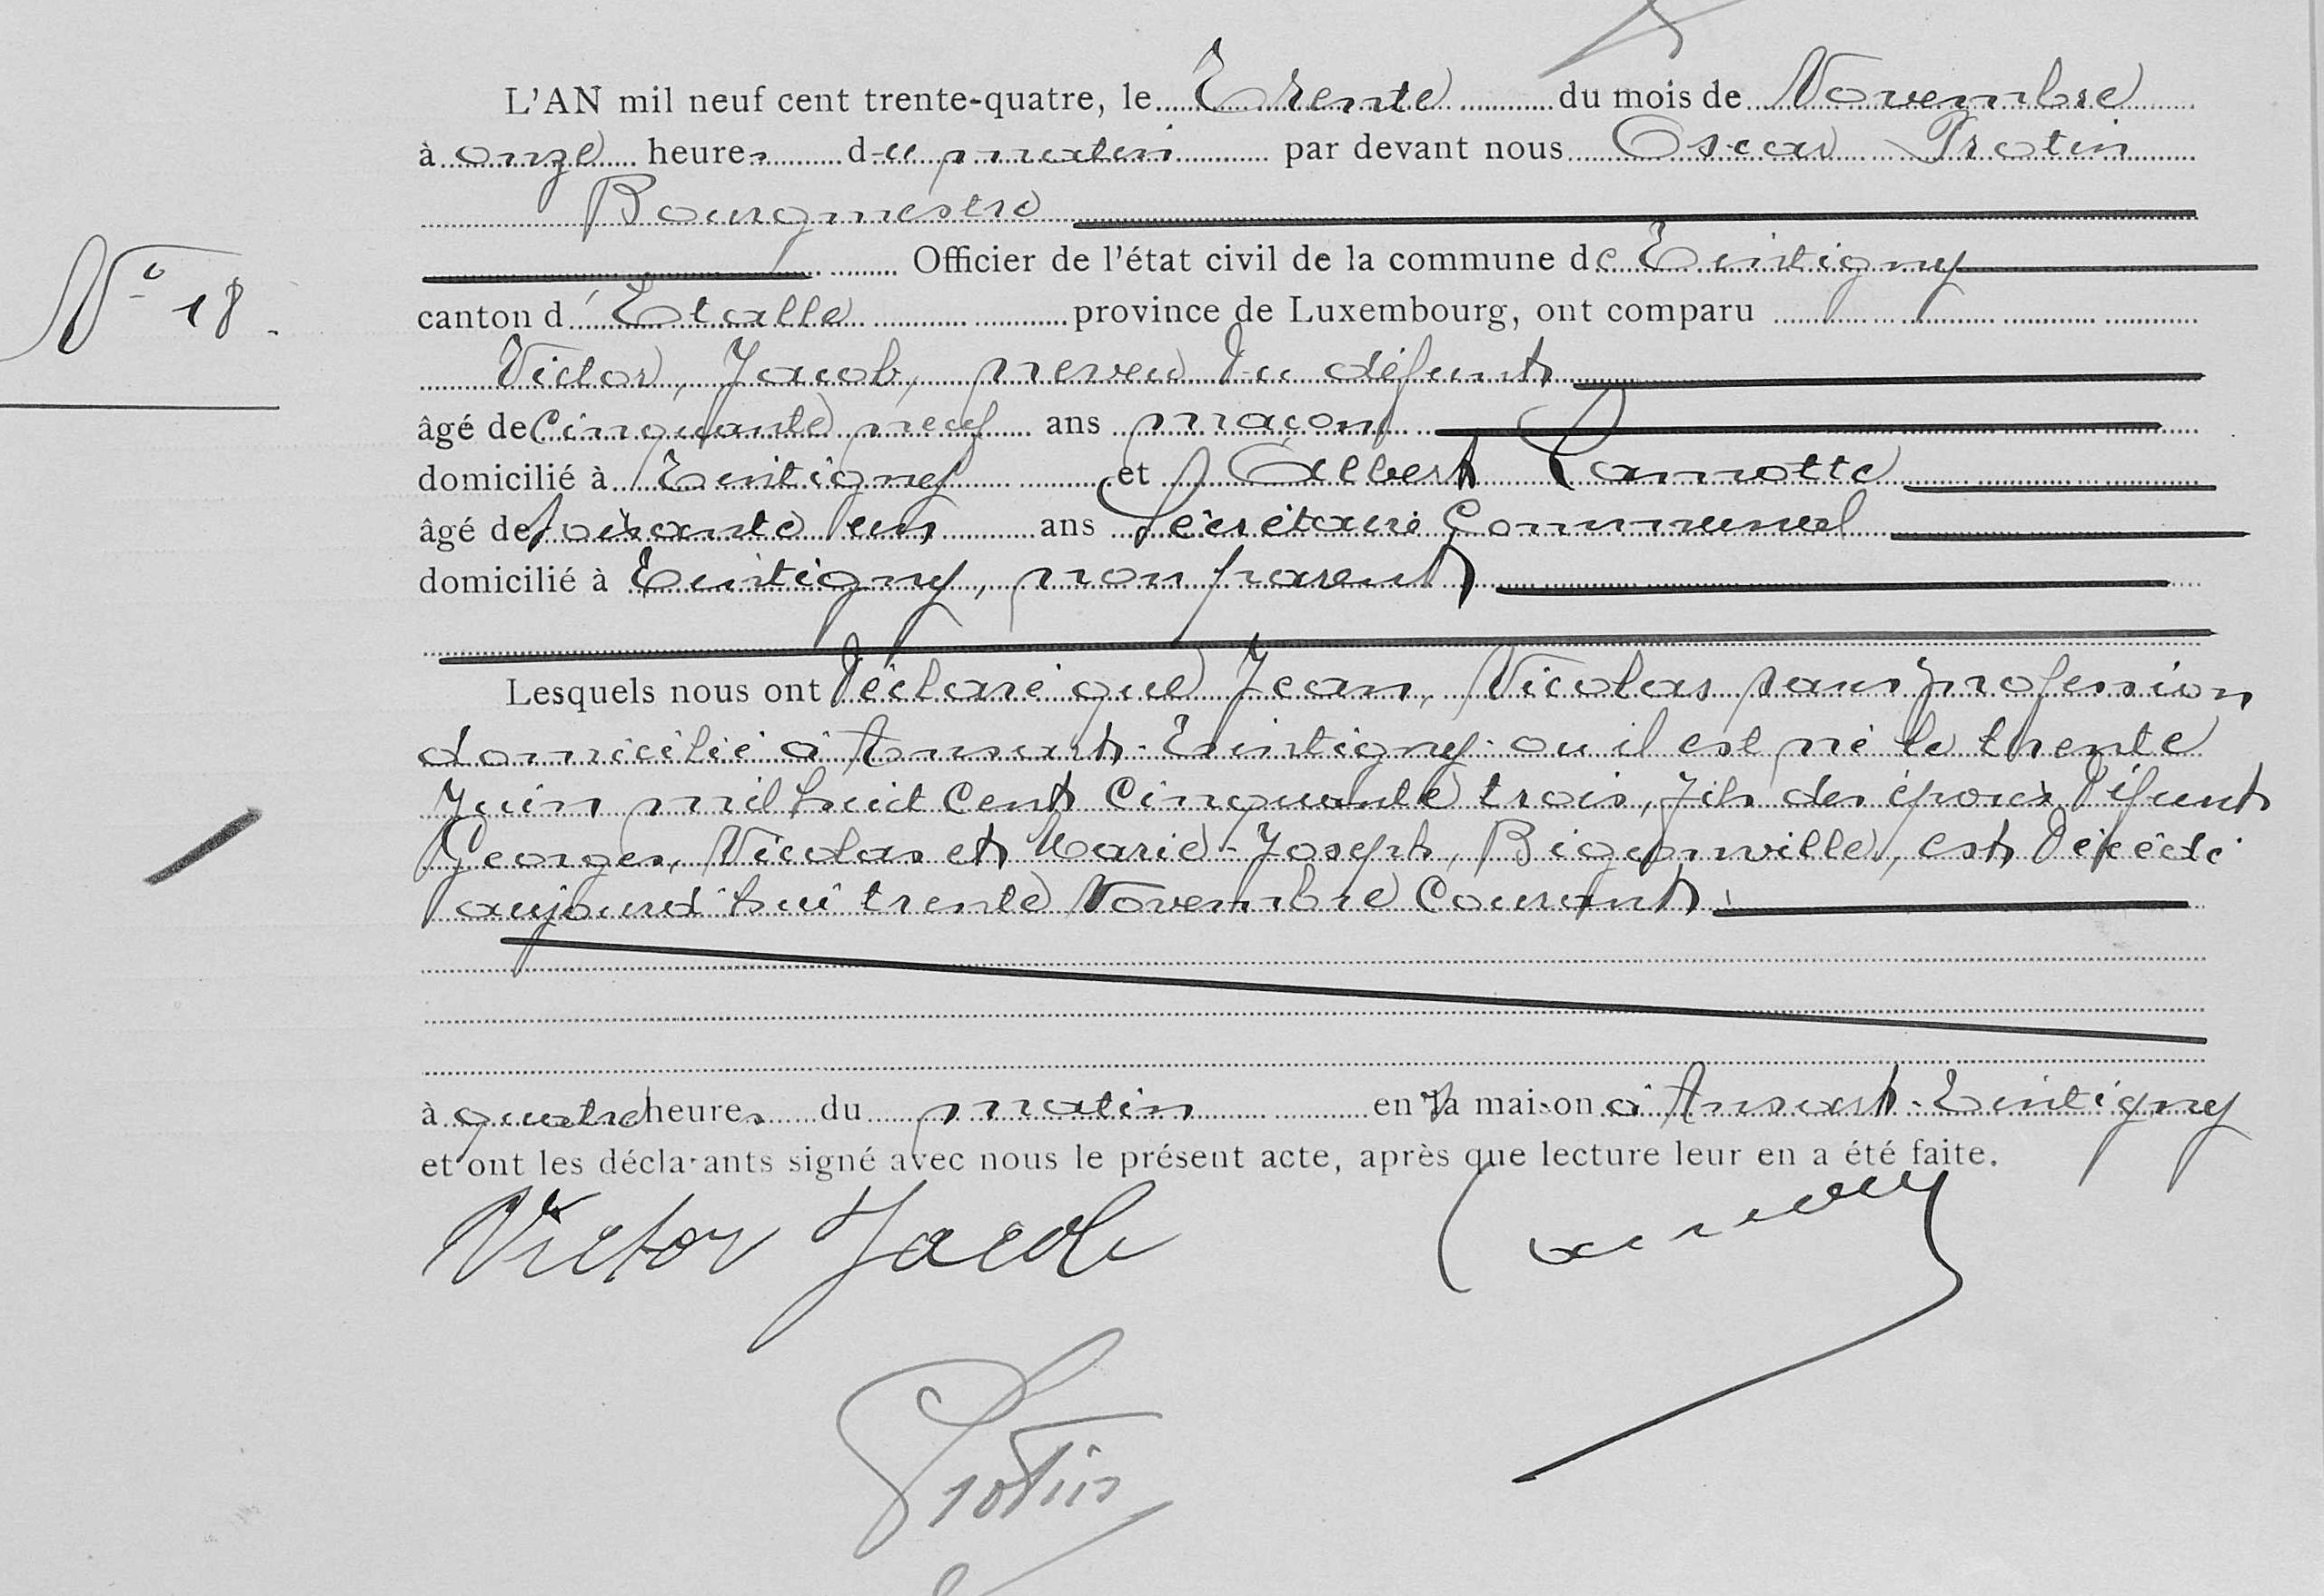 L'AN mil neuf cent trente-quatre, le Trente du mois de Novembre
à onze heures du matin par devant nous Oscar Protin
Bourgmestre
Officier de l'état civil de la commune de Tintigny
N° 18.
canton d'Etalle province de Luxembourg, ont comparu
Victor, Jacob, neveu du défunt
âgé de Cinquante neuf ans maçon
domicilié à Tintigny et Albert Lamotte
âgé de soixante un ans Secrétaire Communal
domicilié à Tintigny, non parent
Lesquels nous ont déclaré que Jean, Nicolas sans profession
domicilié à Ansart-Tintigny où il est né le trente
Juin mil huit Cent Cinquante trois, fils des époux défunts
Georges, Nicolas et Marie-Joseph, Bigonville, est décédé
aujourd'hui trente Novembre Courant.
à quatre heures du matin en sa maison à Ansart-Tintigny
et ont les déclarants signé avec nous le présent acte, après que lecture leur en a été faite.
Victor Jacob
Protin